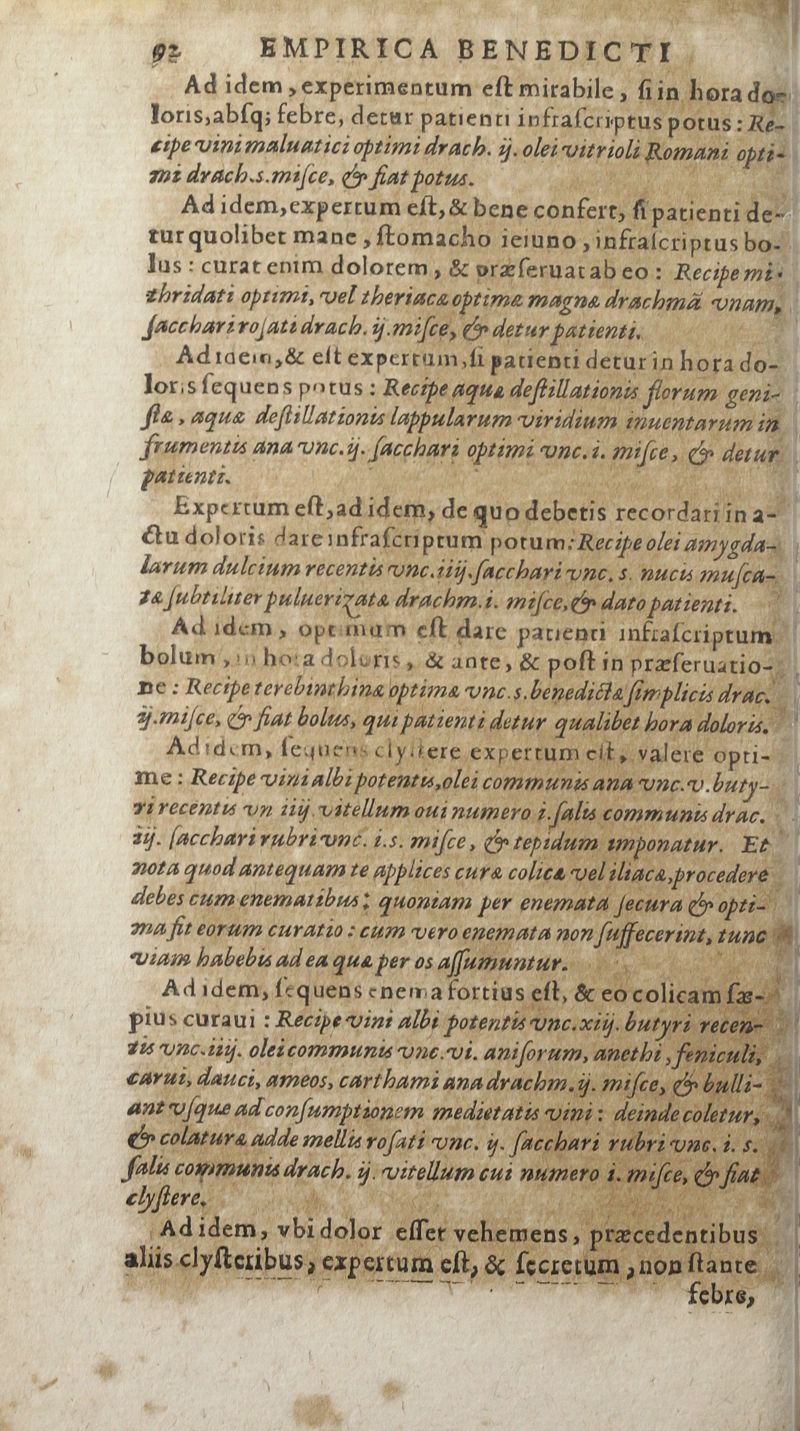 92 EMPIRICA BENEDICTI
Ad idem, experimentum eſt mirabile, ſi in hora do-
loris, abſq; febre, detur patienti infraſcriptus potus: Re-
cipe vini maluatici optimi drach. ij. olei vitrioli Romani opti-
mi drach.s.miſce, & fiat potus.
Ad idem, expertum eſt, & bene confert, ſi patienti de-
tur quolibet mane, ſtomacho ieiuno, infraſcriptus bo-
lus: curat enim dolorem, & præſeruat ab eo: Recipe mi-
thridati optimi, vel theriacæ optimæ magnæ drachmã vnam,
ſacchari roſati drach. ij.miſce, & detur patienti.
Ad idem, & eſt expertum, ſi patienti detur in hora do-
loris ſequens potus: Recipe aquæ deſtillationis florum geni-
ſtæ, aquæ deſtillationis lappularum viridium inuentarum in
frumentis ana vnc.ij. ſacchari optimi vnc. i. miſce, & detur
patienti.
Expertum eſt, ad idem, de quo debetis recordari in a-
ctu doloris dare infraſcriptum potum: Recipe olei amygda-
larum dulcium recentis vnc.iiij.ſacchari vnc. s. nucis muſca-
tæ ſubtiliter pulueriʒatæ drachm.i. miſce, & dato patienti.
Ad idem, optimum eſt dare patienti infraſcriptum
bolum, in hora doloris, & ante, & poſt in præſeruatio-
ne: Recipe terebinthinæ optimæ vnc.s.benedictæ ſimplicis drac.
ij.miſce, & fiat bolus, qui patienti detur qualibet hora doloris.
Ad idem, ſequens clyſtere expertum eſt, valere opti-
me: Recipe vini albi potentis, olei communis ana vnc.v.buty-
ri recentis vn iiij vitellum oui numero i.ſalis communis drac.
iij. ſacchari rubri vnc. i.s. miſce, & tepidum imponatur. Et
nota quod antequam te applices curæ colicæ vel iliacæ, procedere
debes cum enematibus; quoniam per enemata ſecura & opti-
ma fit eorum curatio: cum vero enemata non ſuffecerint, tunc
viam habebis ad ea quæ per os aſſumuntur.
Ad idem, ſequens enema fortius eſt, & eo colicam ſæ-
pius curaui: Recipe vini albi potentis vnc.xiij. butyri recen-
tis vnc.iiij. olei communis vnc.vi. aniſorum, anethi, feniculi,
carui, dauci, ameos, carthami ana drachm.ij. miſce, & bulli-
ant vſque ad conſumptionem medietatis vini: deinde coletur,
& colaturæ adde mellis roſati vnc. ij. ſacchari rubri vnc. i. s.
ſalis communis drach. ij. vitellum cui numero i. miſce, & fiat
clyſtere.
Ad idem, vbi dolor eſſet vehemens, præcedentibus
aliis clyſteribus, expertum eſt, & ſecretum, non ſtante
febre,